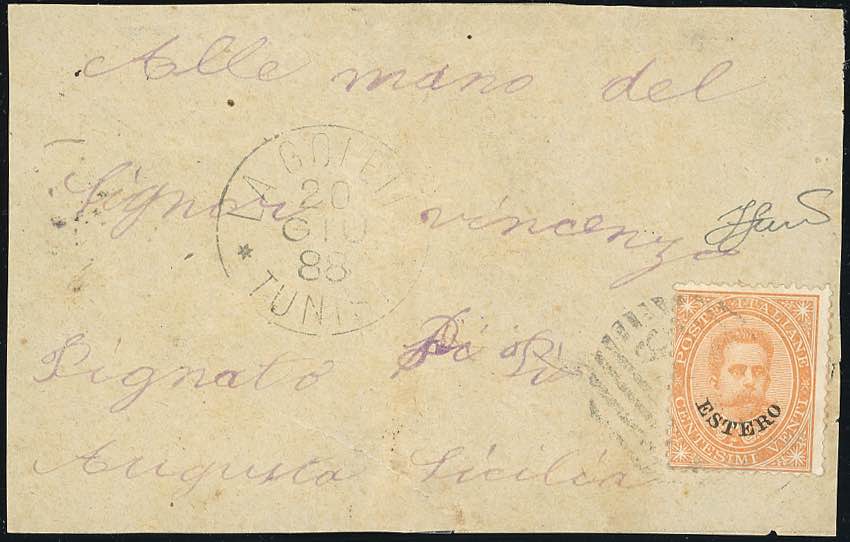 Alle mano del
Signori vincenzo
Pignato
Augusta Sicilia
LA GOLET
20
GIU
88
* TUNIS
POSTE ITALIANE
ESTERO
CENTESIMI VENTI